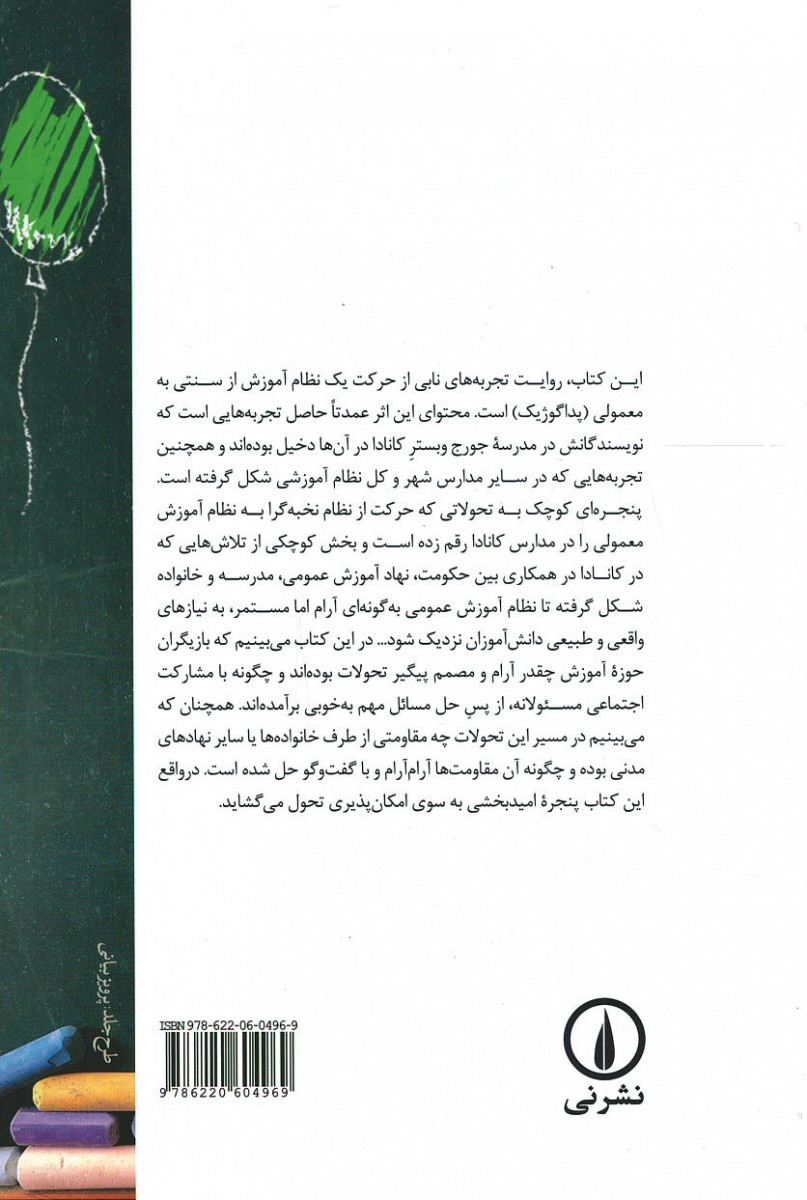 این کتاب، روایت تجربه‌های نابی از حرکت یک نظام آموزش از سنتی به
معمولی (پداگوژیک) است. محتوای این اثر عمدتاً حاصل تجربه‌هایی است که
نویسندگانش در مدرسهٔ جورج وبسترِ کانادا در آن‌ها دخیل بوده‌اند و همچنین
تجربه‌هایی که در سایر مدارس شهر و کل نظام آموزشی شکل گرفته است.
پنجره‌ای کوچک به تحولاتی که حرکت از نظام نخبه‌گرا به نظام آموزش
معمولی را در مدارس کانادا رقم زده است و بخش کوچکی از تلاش‌هایی که
در کانادا در همکاری بین حکومت، نهاد آموزش عمومی، مدرسه و خانواده
شکل گرفته تا نظام آموزش عمومی به‌گونه‌ای آرام اما مستمر، به نیازهای
واقعی و طبیعی دانش‌آموزان نزدیک شود... در این کتاب می‌بینیم که بازیگران
حوزهٔ آموزش چقدر آرام و مصمم پیگیر تحولات بوده‌اند و چگونه با مشارکت
اجتماعی مسئولانه، از پسِ حل مسائل مهم به‌خوبی برآمده‌اند. همچنان که
می‌بینیم در مسیر این تحولات چه مقاومتی از طرف خانواده‌ها یا سایر نهادهای
مدنی بوده و چگونه آن مقاومت‌ها آرام‌آرام و با گفت‌وگو حل شده است. درواقع
این کتاب پنجرهٔ امیدبخشی به سوی امکان‌پذیری تحول می‌گشاید.
طرح جلد: پرویز بیانی
ISBN 978-622-06-0496-9
9 786220 604969
نشرنی